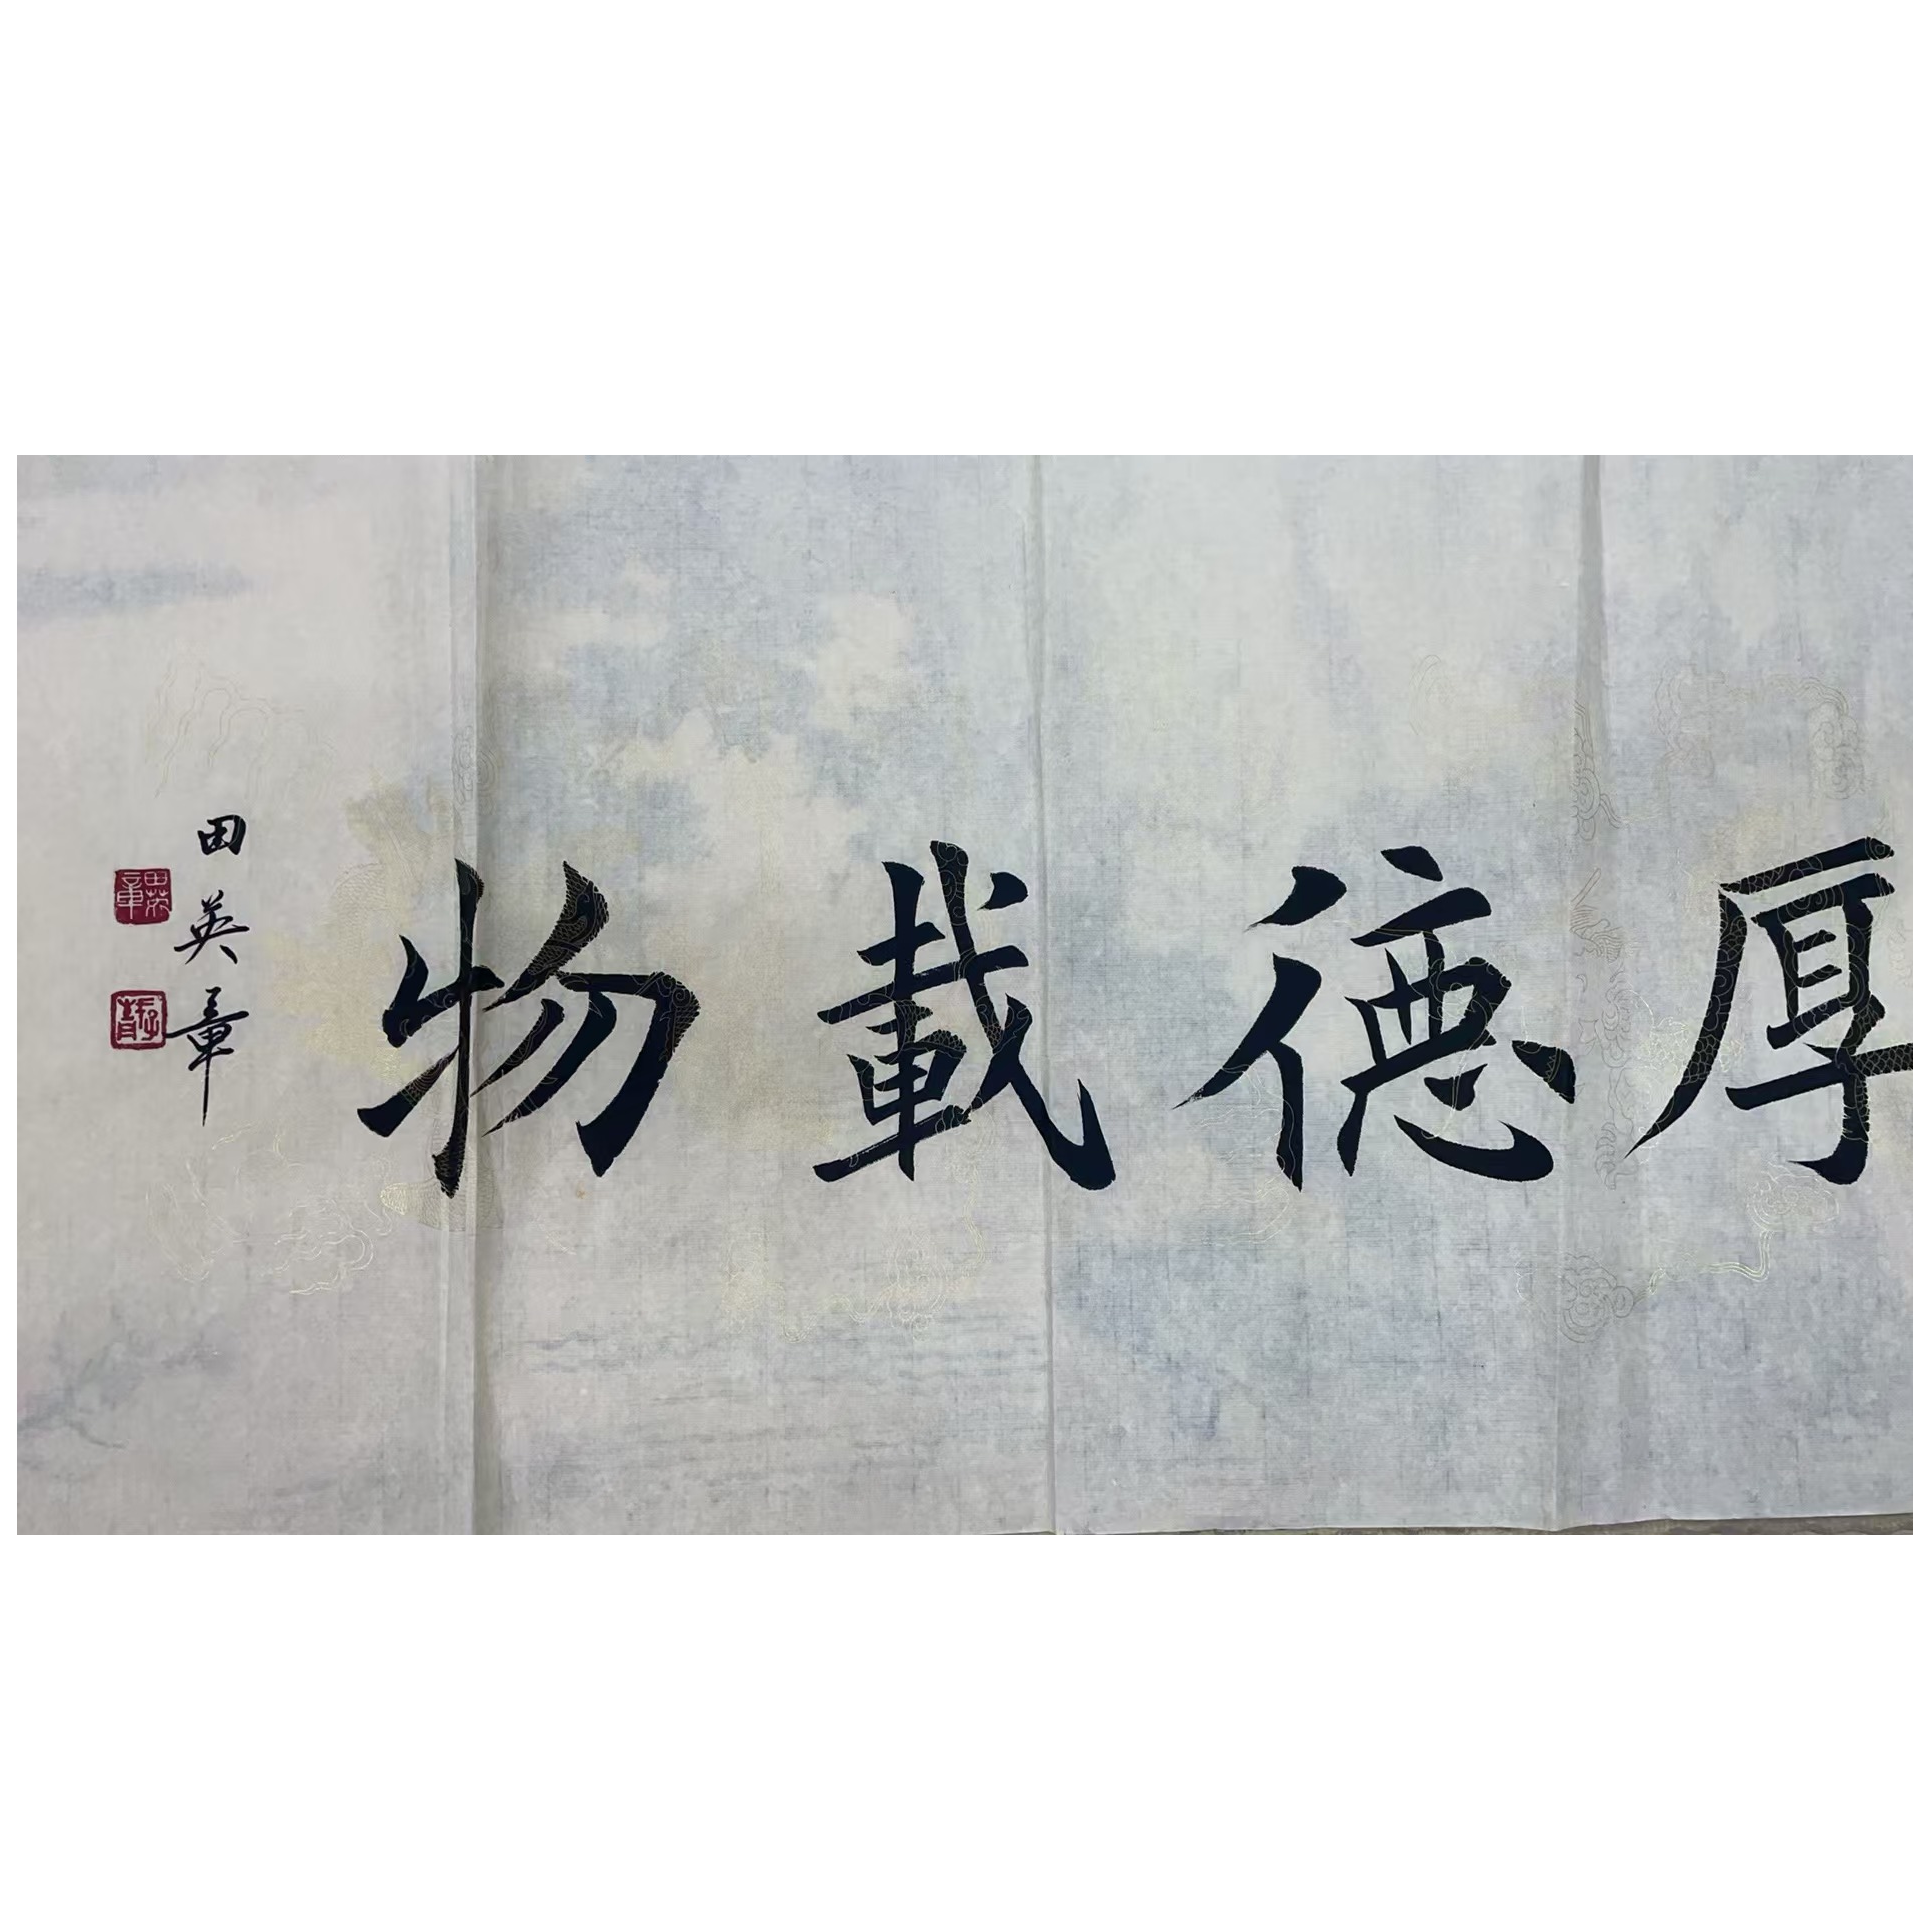 厚德載物
田英章
田英章